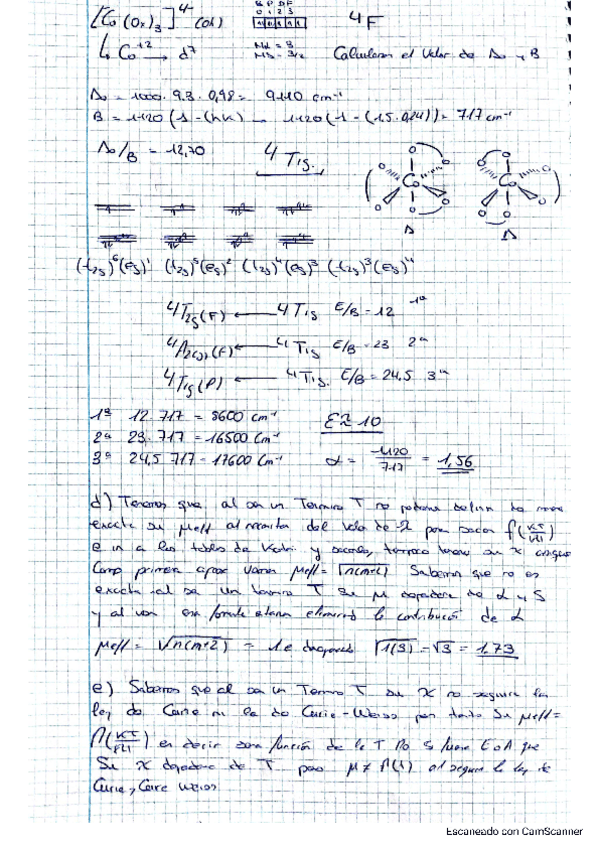 [Co(Ox)3]4- (Oh)
S P D F
0 1 2 3
4F
↳ Co+2 → d7
ML = 3
MS = 3/2
Calculamos el Valor de Δo y B
Δo = 1000 · 9.3 · 0,98 = 9110 cm-1
B = 1120 (1 - (h·k) → 1120 (1 - (1.5 · 0,24)) = 717 cm-1
Δo/B = 12,70
4T1g.
O
Co
O
Co
Δ
Δ
(t2g)6(eg)1 (t2g)5(eg)2 (t2g)4(eg)3 (t2g)3(eg)4
4T2g(F) ← 4T1g E/B = 12 1ª
4A2g(F) ← 4T1g E/B = 23 2ª
4T1g(P) ← 4T1g. E/B = 24,5 3ª
1ª 12 · 717 = 8600 cm-1
E ≈ 10
2ª 23 · 717 = 16500 cm-1
3ª 24,5 717 = 17600 cm-1
α = 1120/717 = 1,56
d) Tenemos que al ser un Termino T no podemos definir de
exacta su μeff al necesitar del Valor de λ para sacar f(KT/|λ|)
e ir a las tablas de y sacarlo,
Como primera aprox μeff = √n(n+2) Sabemos que no es
exacta al ser un termino T Su μ dependera de L y S
y al usar esa formula eliminamos la contribución de L
μeff = √n(n+2) = 1e √1(3) = √3 = 1.73
e) Sabemos que al ser un Termino T su χ no seguira la
ley de Curie ni la de Curie-Weiss por tanto Su μeff =
f(KT/|λ|) es decir sera función de la T No si fuera E o A que
Su χ dependera de T pero μ ≠ f(T) al seguir la ley de
Curie y Curie Weiss
Escaneado con CamScanner